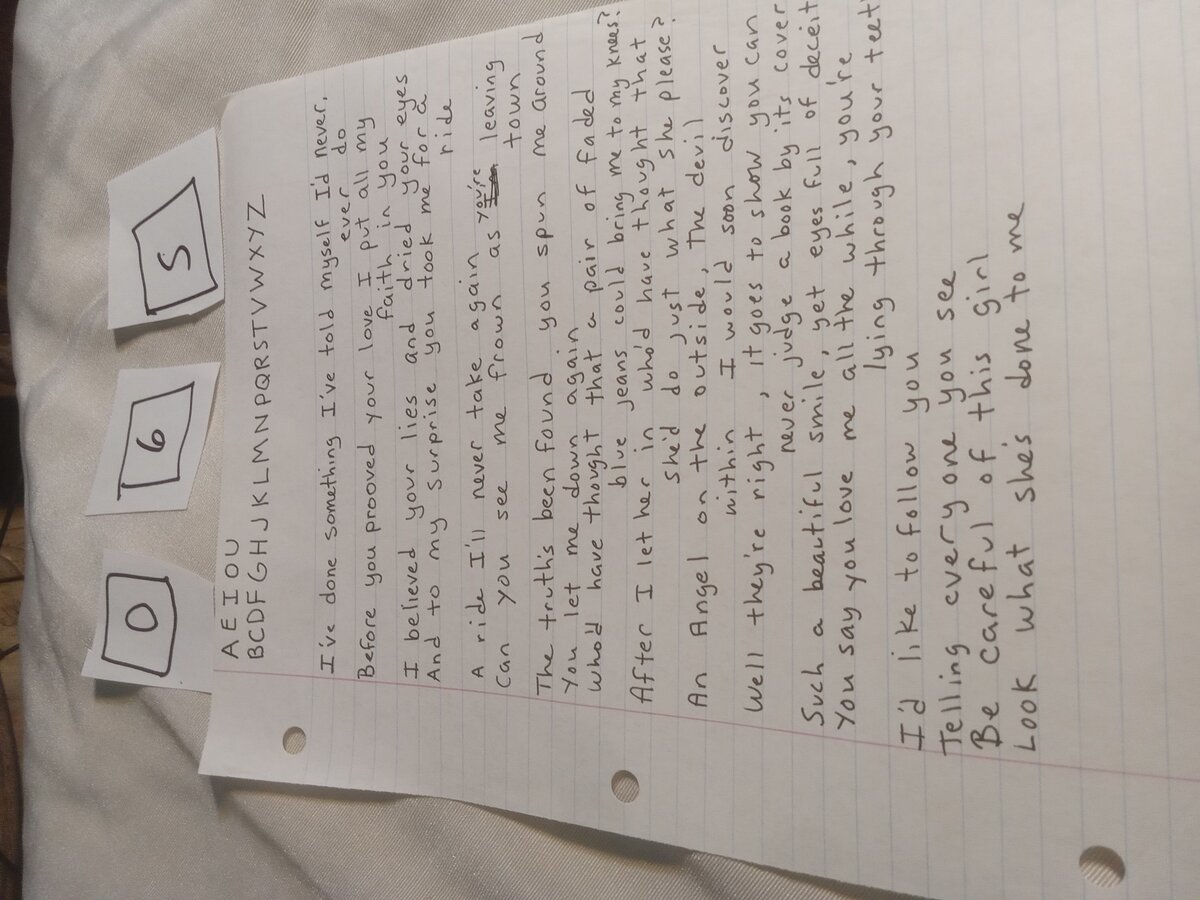 O 6 S
A E I O U
BCDFGHJKLMNPQRSTVWXYZ
I've done something I've told myself I'd never,
ever do
Before you prooved your love I put all my
faith in you
I believed your lies and dried your eyes
And to my surprise you took me for a
ride
A ride I'll never take again
Can you see me frown as you're leaving
town
The truth's been found you spun me around
You let me down again
who'd have thought that a pair of faded
blue jeans could bring me to my knees?
After I let her in who'd have thought that
she'd do just what she please?
An Angel on the outside, The devil
within I would soon discover
Well they're right, it goes to show you can
never judge a book by its cover
Such a beautiful smile, yet eyes full of deceit
You say you love me all the while, you're
lying through your teet
I'd like to follow you
Telling every one you see
Be careful of this girl
Look what she's done to me